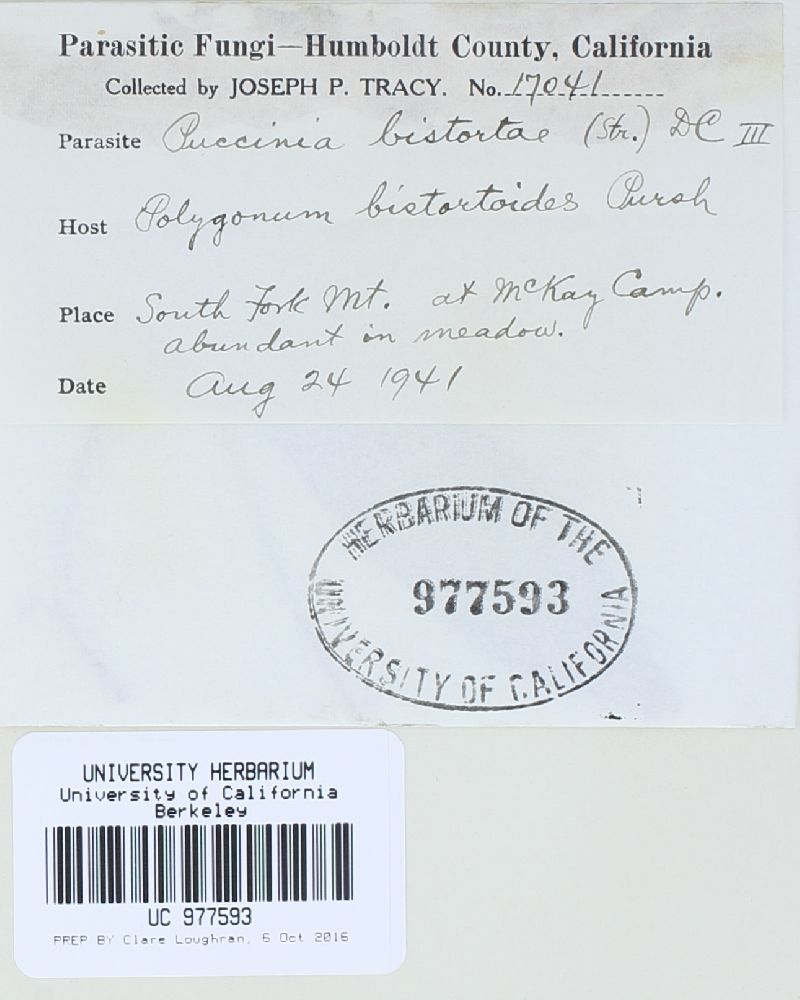 Parasitic Fungi—Humboldt County, California
Collected by JOSEPH P. TRACY. No. 17041
Parasite Puccinia bistortae (Str.) DC III
Host Polygonum bistortoides Pursh
Place South Fork Mt. at McKay Camp.
abundant in meadow.
Date Aug 24 1941
HERBARIUM OF THE
977593
UNIVERSITY OF CALIFORNIA
UNIVERSITY HERBARIUM
University of California
Berkeley
UC 977593
PREP BY Clare Loughran, 6 Oct 2016